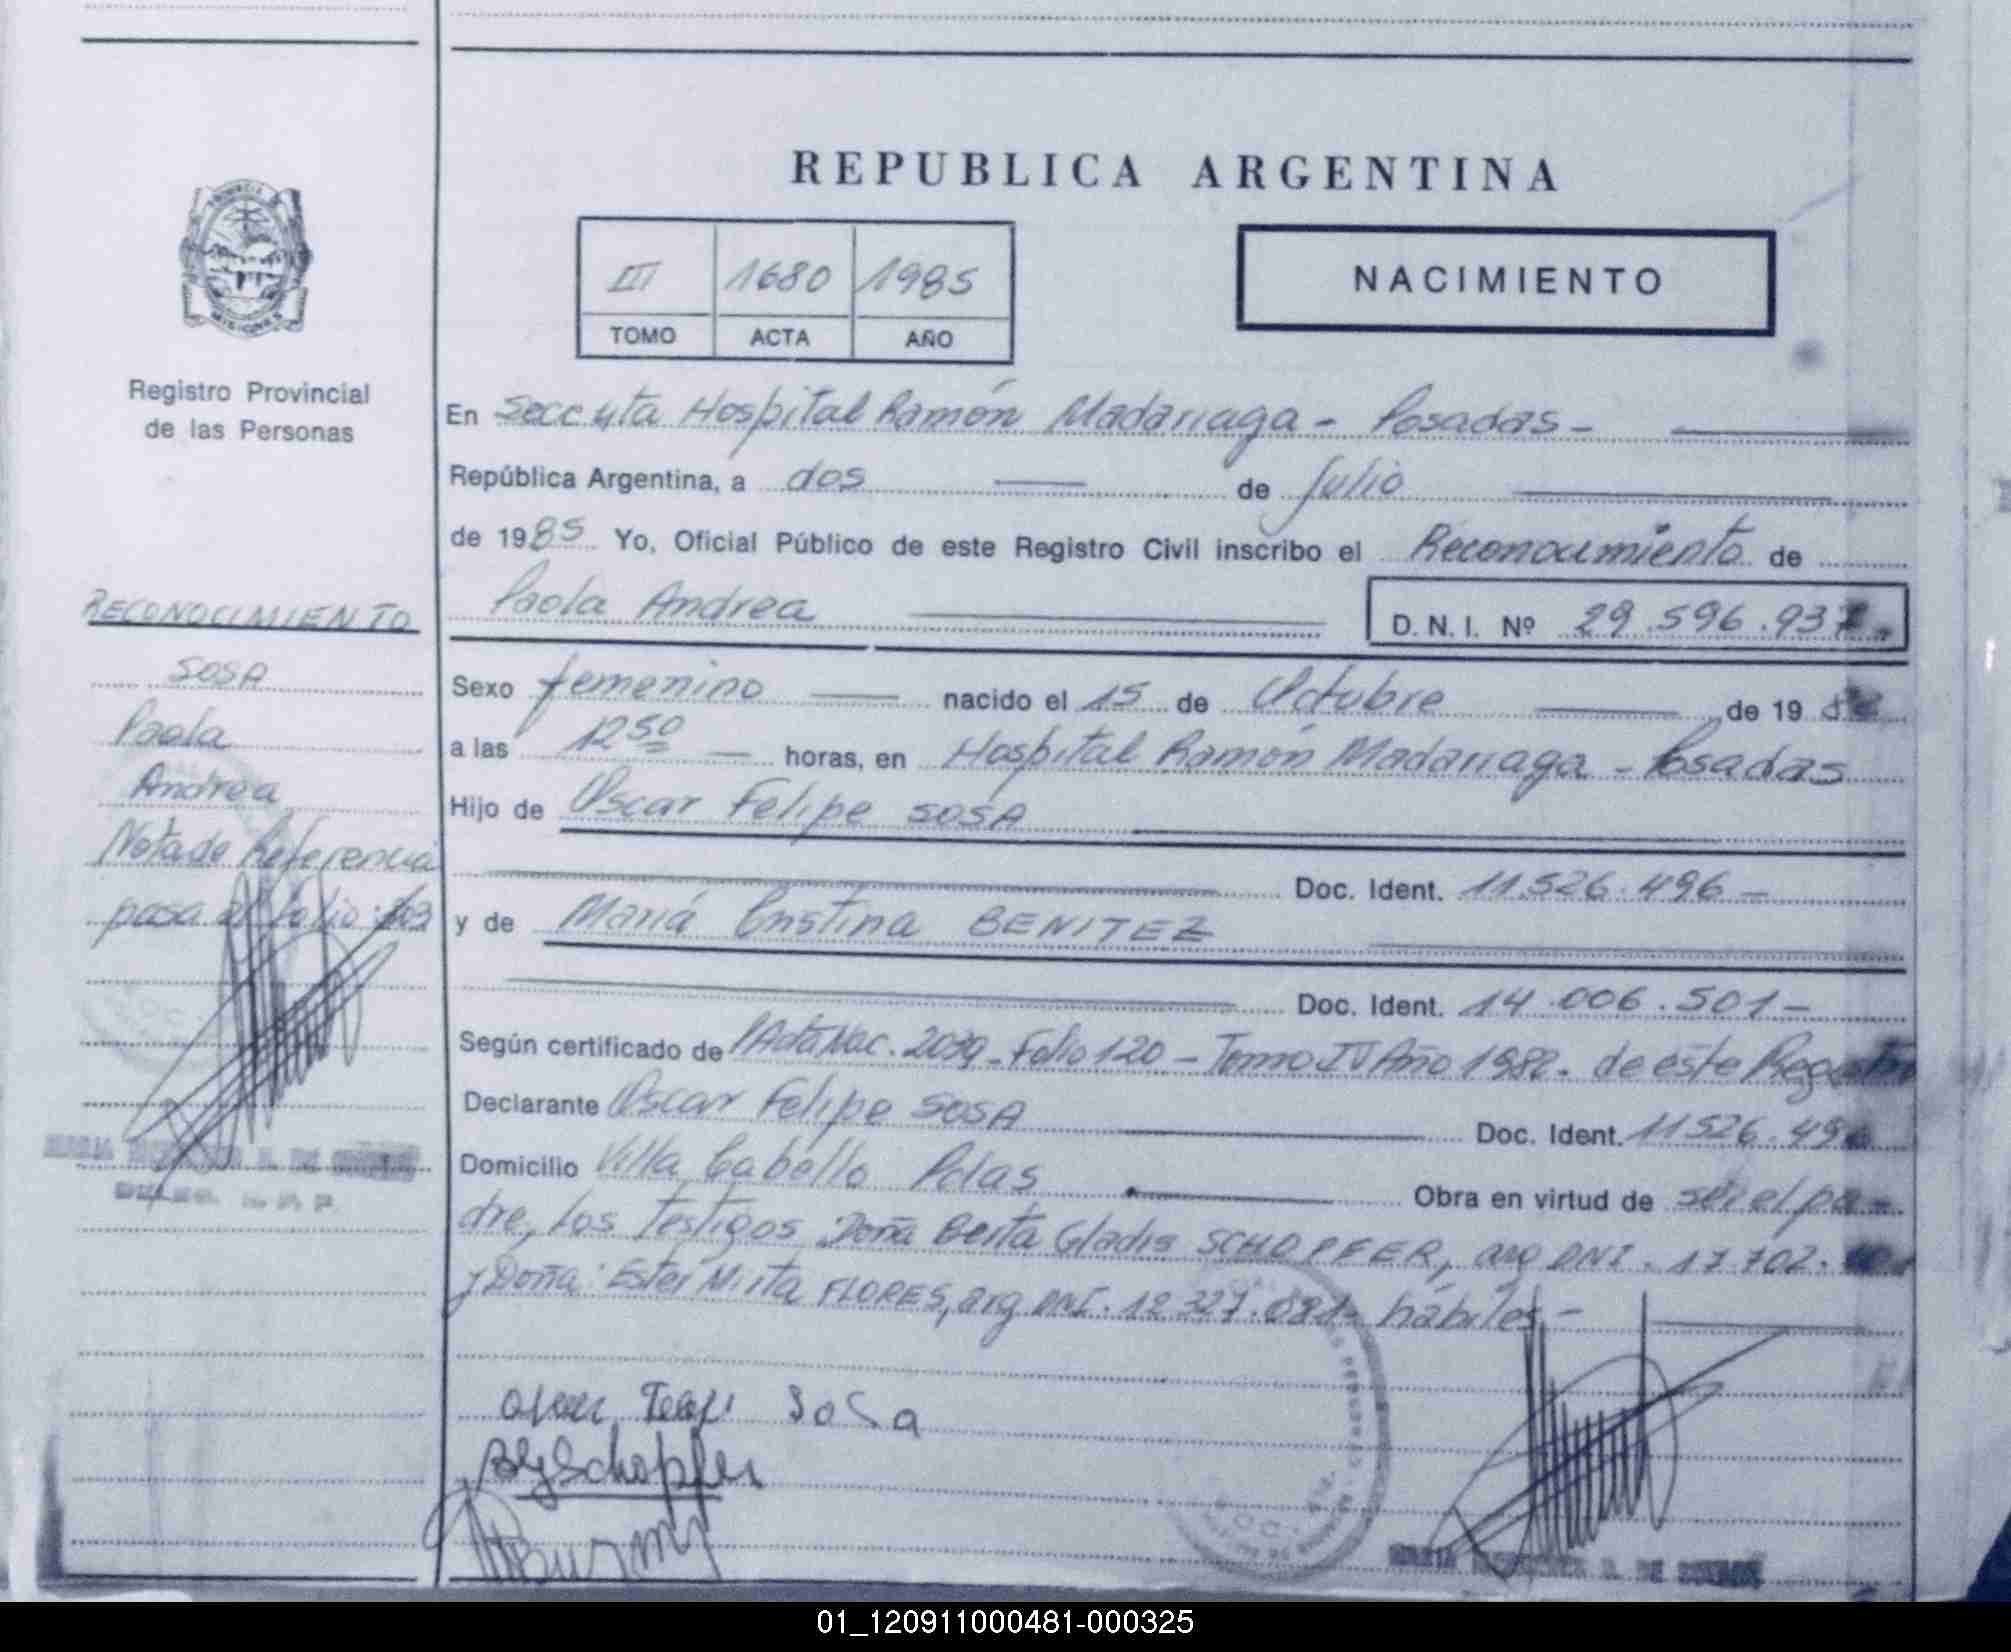 REPUBLICA ARGENTINA
III 1680 1985
TOMO ACTA AÑO
NACIMIENTO
PROVINCIA
MISIONES
Registro Provincial
de las Personas
RECONOCIMIENTO
SOSA
Paola
Andrea
Nota de Referencia
pasa al folio
En Secc 4ta Hospital Ramón Madariaga - Posadas -
República Argentina, a dos de Julio
de 1985 Yo, Oficial Público de este Registro Civil inscribo el Reconocimiento de
Paola Andrea D. N. I. Nº 29.596.937
Sexo femenino nacido el 15 de Octubre de 1982
a las 12 50 horas, en Hospital Ramón Madariaga - Posadas
Hijo de Oscar Felipe SOSA
Doc. Ident. 11.526.496 -
y de María Cristina BENITEZ
Doc. Ident. 14.006.501 -
Según certificado de Acta Nac. 2039 - Folio 120 - Tomo IV Año 1982 - de este Registro
Declarante Oscar Felipe SOSA Doc. Ident. 11526.496
Domicilio Villa Cabello Pdas Obra en virtud de ser el pa-
dre, los testigos Doña Berta Gladis SCHOPFER, arg DNI. 17.702.
y Doña: Ester Mirta FLORES, arg DNI. 12.327.081 - hábiles -
SOSA
BGSchopfer
MARIA DE
01_120911000481-000325